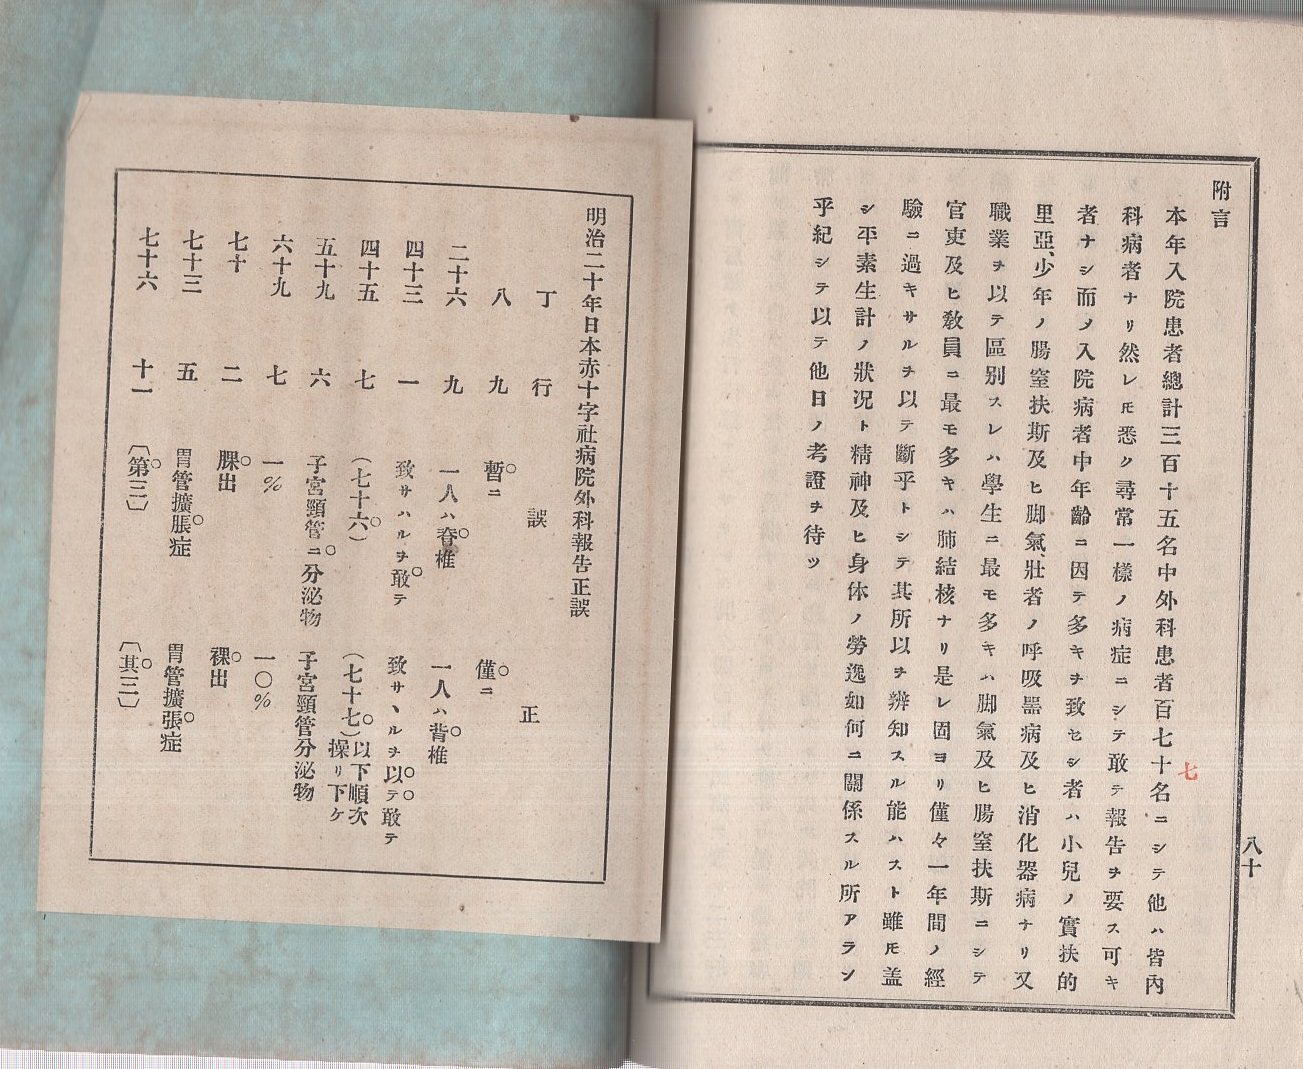 附言
本年入院患者總計三百十五名中外科患者百七十名ニシテ他ハ皆內
科病者ナリ然レ𪜈悉ク尋常一樣ノ病症ニシテ敢テ報告ヲ要ス可キ
者ナシ而〆入院病者中年齡ニ因テ多キヲ致セシ者ハ小兒ノ實扶的
里亞、少年ノ腸窒扶斯及ヒ脚氣、壯者ノ呼吸器病及ヒ消化器病ナリ又
職業ヲ以テ區別スレハ學生ニ最モ多キハ脚氣及ヒ腸窒扶斯ニシテ
官吏及ヒ敎員ニ最モ多キハ肺結核ナリ是レ固ヨリ僅々一年間ノ經
驗ニ過キサルヲ以テ斷乎トシテ其所以ヲ辨知スル能ハスト雖𪜈盖
シ平素生計ノ狀况ト精神及ヒ身体ノ勞逸如何ニ關係スル所アラン
乎紀シテ以テ他日ノ考證ヲ待ツ
七
八十
明治二十年日本赤十字社病院外科報告正誤
丁 行 誤 正
八 九 暫ニ 僅ニ
二十六 九 一人ハ脊椎 一人ハ背椎
四十三 一 致サハルヲ敢テ 致サヽルヲ以テ敢テ
四十五 七 (七十六) (七十七)以下順次操リ下ケ
五十九 六 子宮頸管ニ分泌物 子宮頸管分泌物
六十九 七 一% 一〇%
七十 二 腂出 裸出
七十三 五 胃管擴脹症 胃管擴張症
七十六 十一 〔第三〕 〔其三〕